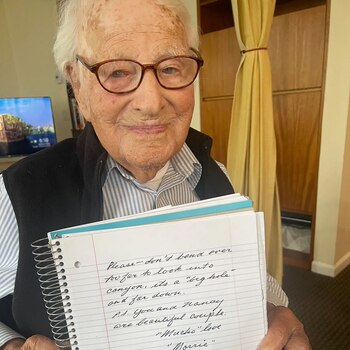 Please - don't bend over
too far to look into
canyon. its a "big hole"
and far down.
P.S. You and Nancy
are beautiful couple.
"Mucho" love
"Morrie"